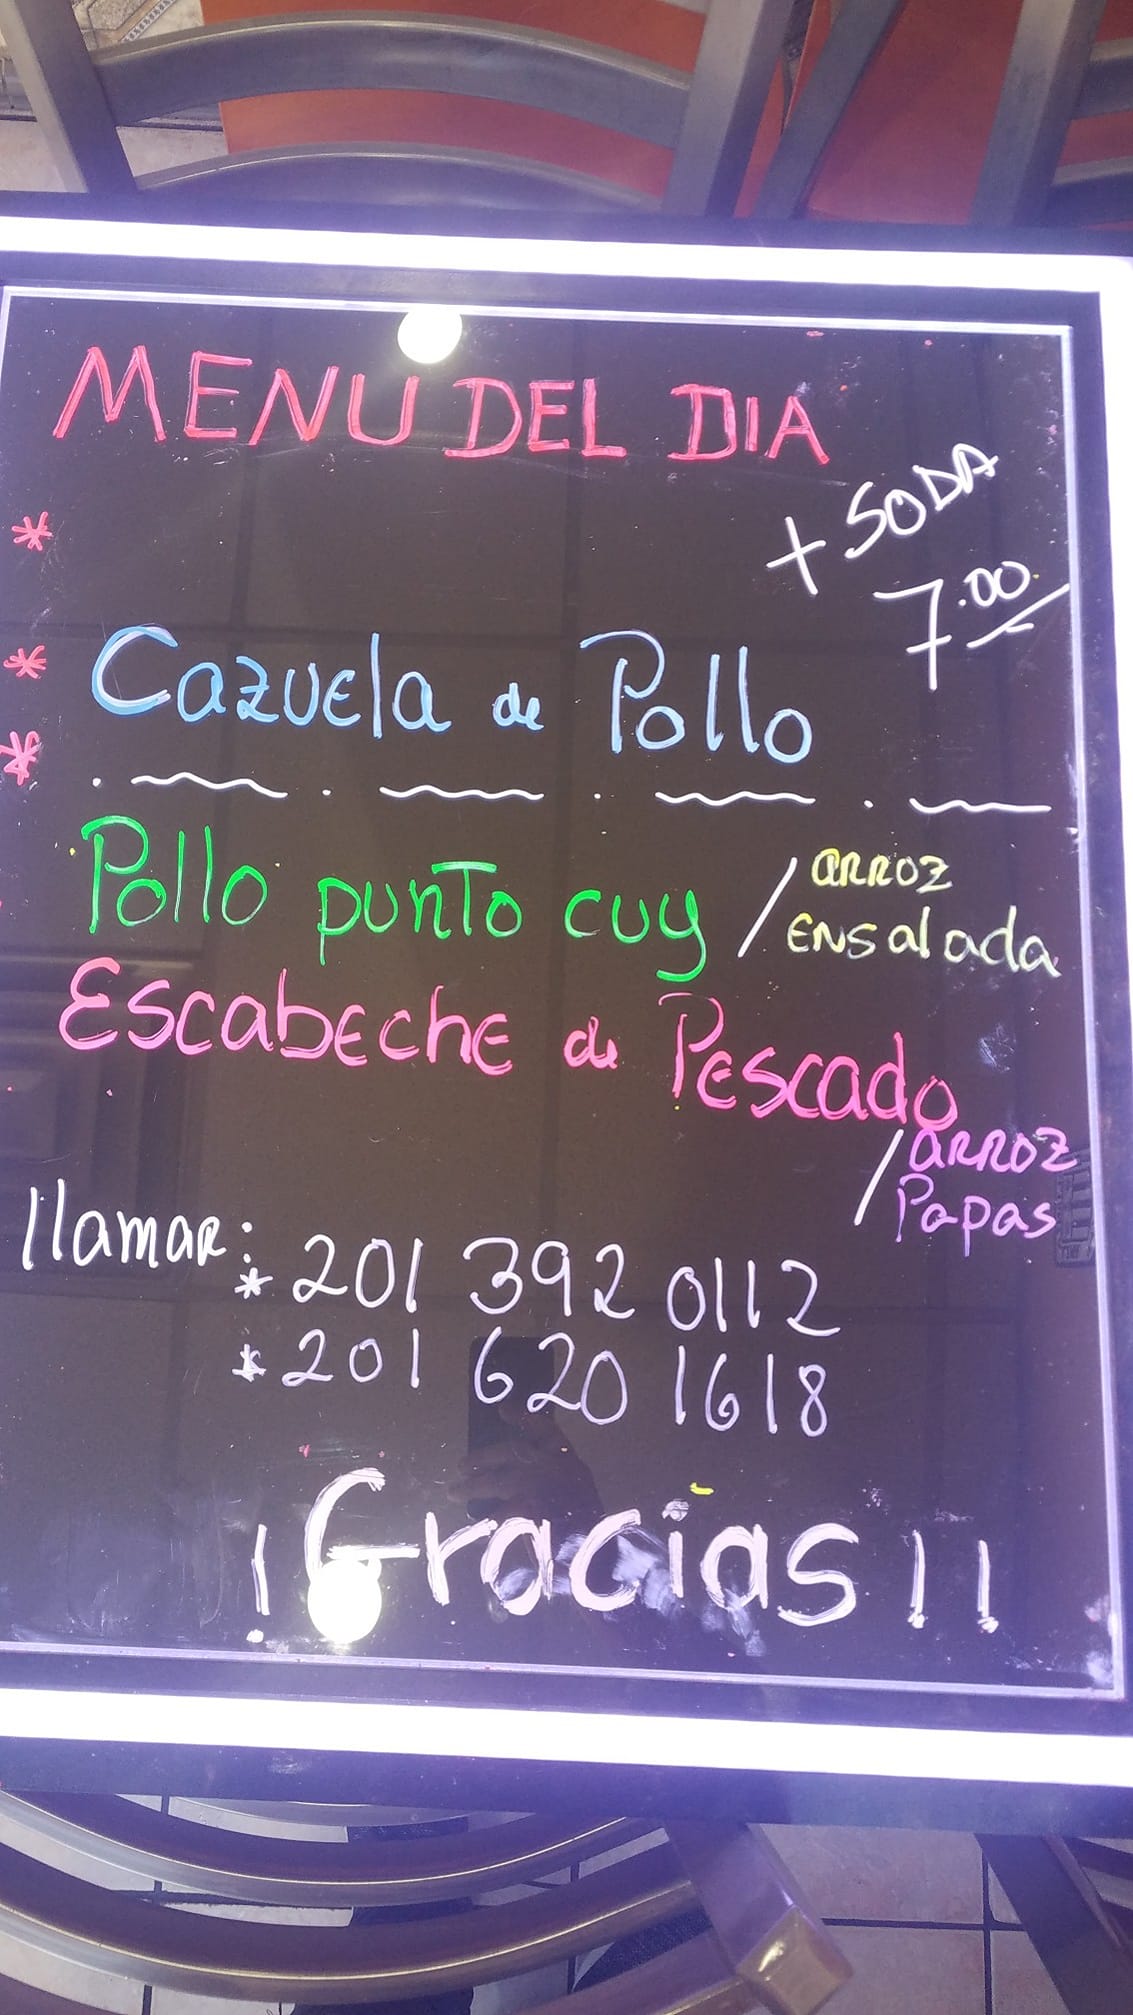 MENU DEL DIA
+ SODA
7.00
*
* Cazuela de Pollo
*
Pollo punto cuy / arroz
Ensalada
Escabeche de Pescado
/ arroz
Papas
llamar:
* 201 392 0112
* 201 620 1618
¡Gracias!!